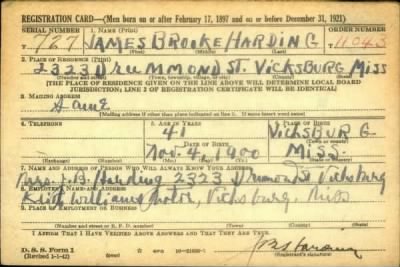 REGISTRATION CARD—(Men born on or after February 17, 1897 and on or before December 31, 1921)
SERIAL NUMBER 1. NAME (Print) ORDER NUMBER
T 727 JAMES BROOKE HARDING T 11043
(First) (Middle) (Last)
2. PLACE OF RESIDENCE (Print)
2323 DRUMMOND ST. VICKSBURG MISS
(Number and street) (Town, township, village, or city) (County) (State)
[THE PLACE OF RESIDENCE GIVEN ON THE LINE ABOVE WILL DETERMINE LOCAL BOARD
JURISDICTION; LINE 2 OF REGISTRATION CERTIFICATE WILL BE IDENTICAL]
3. MAILING ADDRESS
Same
[Mailing address if other than place indicated on line 2. If same insert word same]
4. TELEPHONE 5. AGE IN YEARS 6. PLACE OF BIRTH
41 VICKSBURG
DATE OF BIRTH (Town or county)
Nov. 4, 1900 MISS.
(Exchange) (Number) (Mo.) (Day) (Yr.) (State or country)
7. NAME AND ADDRESS OF PERSON WHO WILL ALWAYS KNOW YOUR ADDRESS
Mrs. J.B. Harding 2323 Drumond St Vicksburg
8. EMPLOYER'S NAME AND ADDRESS
Williams Motor, Vicksburg, Miss
9. PLACE OF EMPLOYMENT OR BUSINESS
(Number and street or R. F. D. number) (Town) (County) (State)
I AFFIRM THAT I HAVE VERIFIED ABOVE ANSWERS AND THAT THEY ARE TRUE.
D. S. S. Form 1
(Revised 1-1-42) (over)
JB Harding
(Registrant's signature)